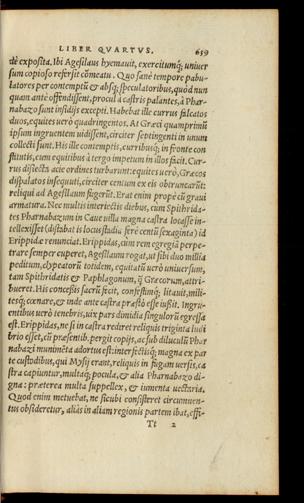 LIBER QVARTVS. 659
dè exposita. Ibi Agesilaus hyemauit, exercitumq; uniuer
sum copioso refersit cōmeatu. Quo sanè tempore pabu-
latores per contemptū & absq; speculatoribus, quòd nun
quam antè offendissent, procul à castris palantes, à Phar-
nabazo sunt insidijs excepti. Habebat ille currus falcatos
duos, equites uerò quadringentos. At Græci quamprimū
ipsum ingruentem uidissent, circiter septingenti in unum
collecti sunt. His ille contemptis, curribusq; in fronte con
stitutis, cum equitibus à tergo impetum in illos facit. Cur-
rus disiecta acie ordines turbarunt: equites uerò, Græcos
dispalatos insequuti, circiter centum ex eis obtruncarūt:
reliqui ad Agesilaum fugerūt. Erat enim propè cū graui
armatura. Nec multis interiectis diebus, cum Spithrida-
tes Pharnabazum in Caue uilla magna castra locasse in-
tellexisset (distabat is locus stadia ferè centū sexaginta) id
Erippidæ renunciat. Erippidas, cum rem egregiā perpe-
trare semper cuperet, Agesilaum rogat, ut sibi duo millia
peditum, clypeatorū totidem, equitatū uerò uniuersum,
tam Spithridatis & Paphlagonum, q̄ Græcorum, attri-
bueret. His concessis sacrū fecit, confestimq; litauit, mili-
tesq; cœnare, & inde ante castra præstò esse iußit. Ingru-
entibus uerò tenebris, uix pars dimidia singulorū egressa
est. Erippidas, ne si in castra rediret reliquis triginta ludi
brio esset, cū præsentib. pergit copijs, ac sub diluculū Phar
nabazi munimēta adortus est: interfectisq; magna ex par
te custodibus, qui Mysij erant, reliquis in fugam uersis, ca
stra capiuntur, multaq; pocula, & alia Pharnabazo di-
gna: præterea multa suppellex, & iumenta uectaria.
Quod enim metuebat, ne sicubi consisteret circumuen-
tus obsideretur, aliàs in aliam regionis partem ibat, effi-
Tt 2